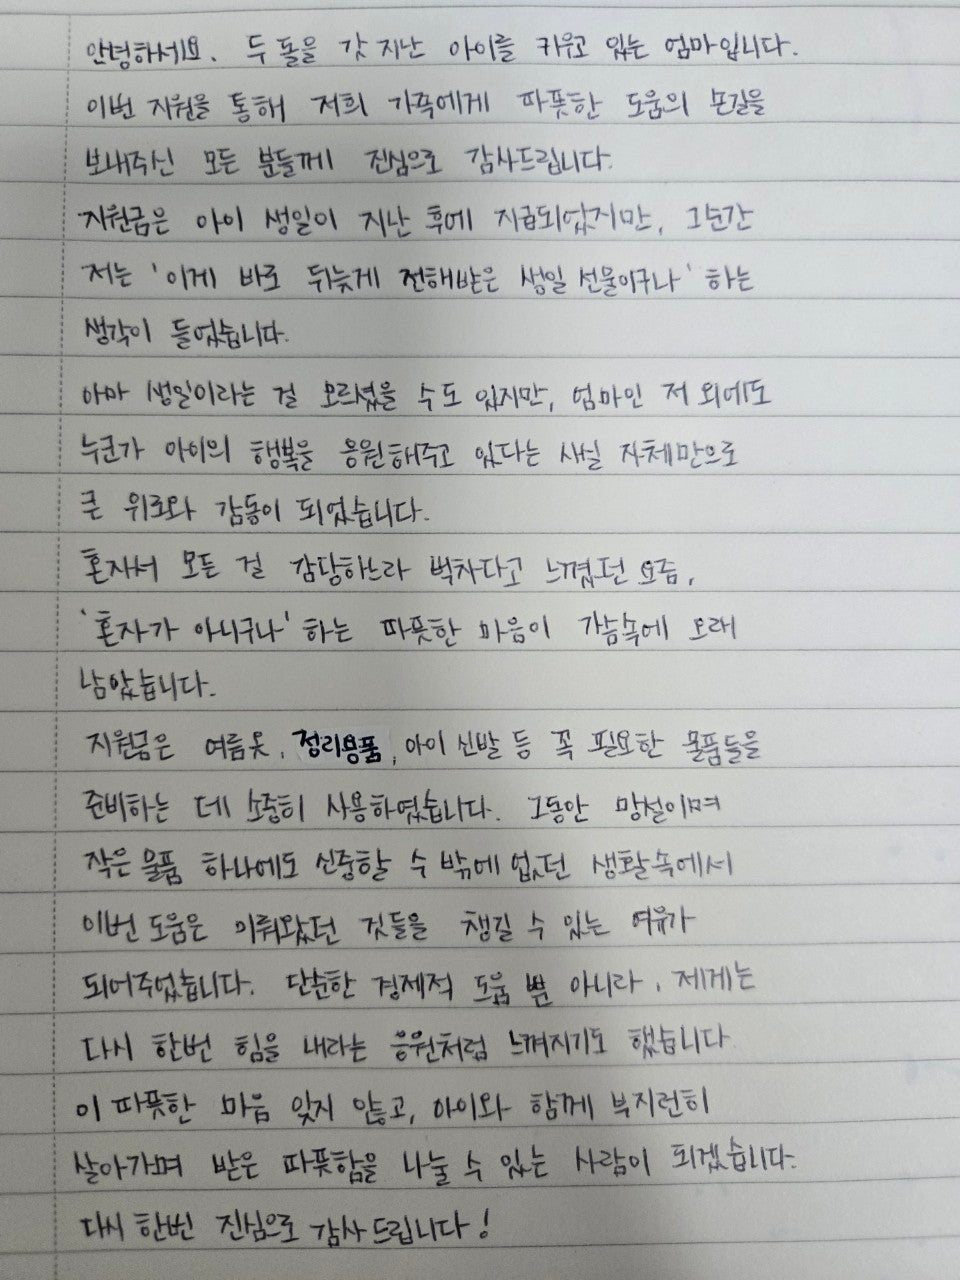 안녕하세요. 두 돌을 갓 지난 아이를 키우고 있는 엄마입니다.
이번 지원을 통해 저희 가족에게 따뜻한 도움의 손길을
보내주신 모든 분들께 진심으로 감사드립니다.
지원금은 아이 생일이 지난 후에 지급되었지만, 그순간
저는 '이게 바로 뒤늦게 전해받은 생일 선물이구나' 하는
생각이 들었습니다.
아마 생일이라는 걸 모르셨을 수도 있지만, 엄마인 저 외에도
누군가 아이의 행복을 응원해주고 있다는 사실 자체만으로
큰 위로와 감동이 되었습니다.
혼자서 모든 걸 감당하느라 벅차다고 느꼈던 요즘,
'혼자가 아니구나' 하는 따뜻한 마음이 가슴속에 오래
남았습니다.
지원금은 여름옷, 정리용품, 아이 신발 등 꼭 필요한 물품들을
준비하는 데 소중히 사용하였습니다. 그동안 망설이며
작은 물품 하나에도 신중할 수 밖에 없던 생활속에서
이번 도움은 미뤄왔던 것들을 챙길 수 있는 여유가
되어주었습니다. 단순한 경제적 도움 뿐 아니라, 제게는
다시 한번 힘을 내라는 응원처럼 느껴지기도 했습니다
이 따뜻한 마음 잊지 않고, 아이와 함께 부지런히
살아가며 받은 따뜻함을 나눌 수 있는 사람이 되겠습니다.
다시 한번 진심으로 감사드립니다!